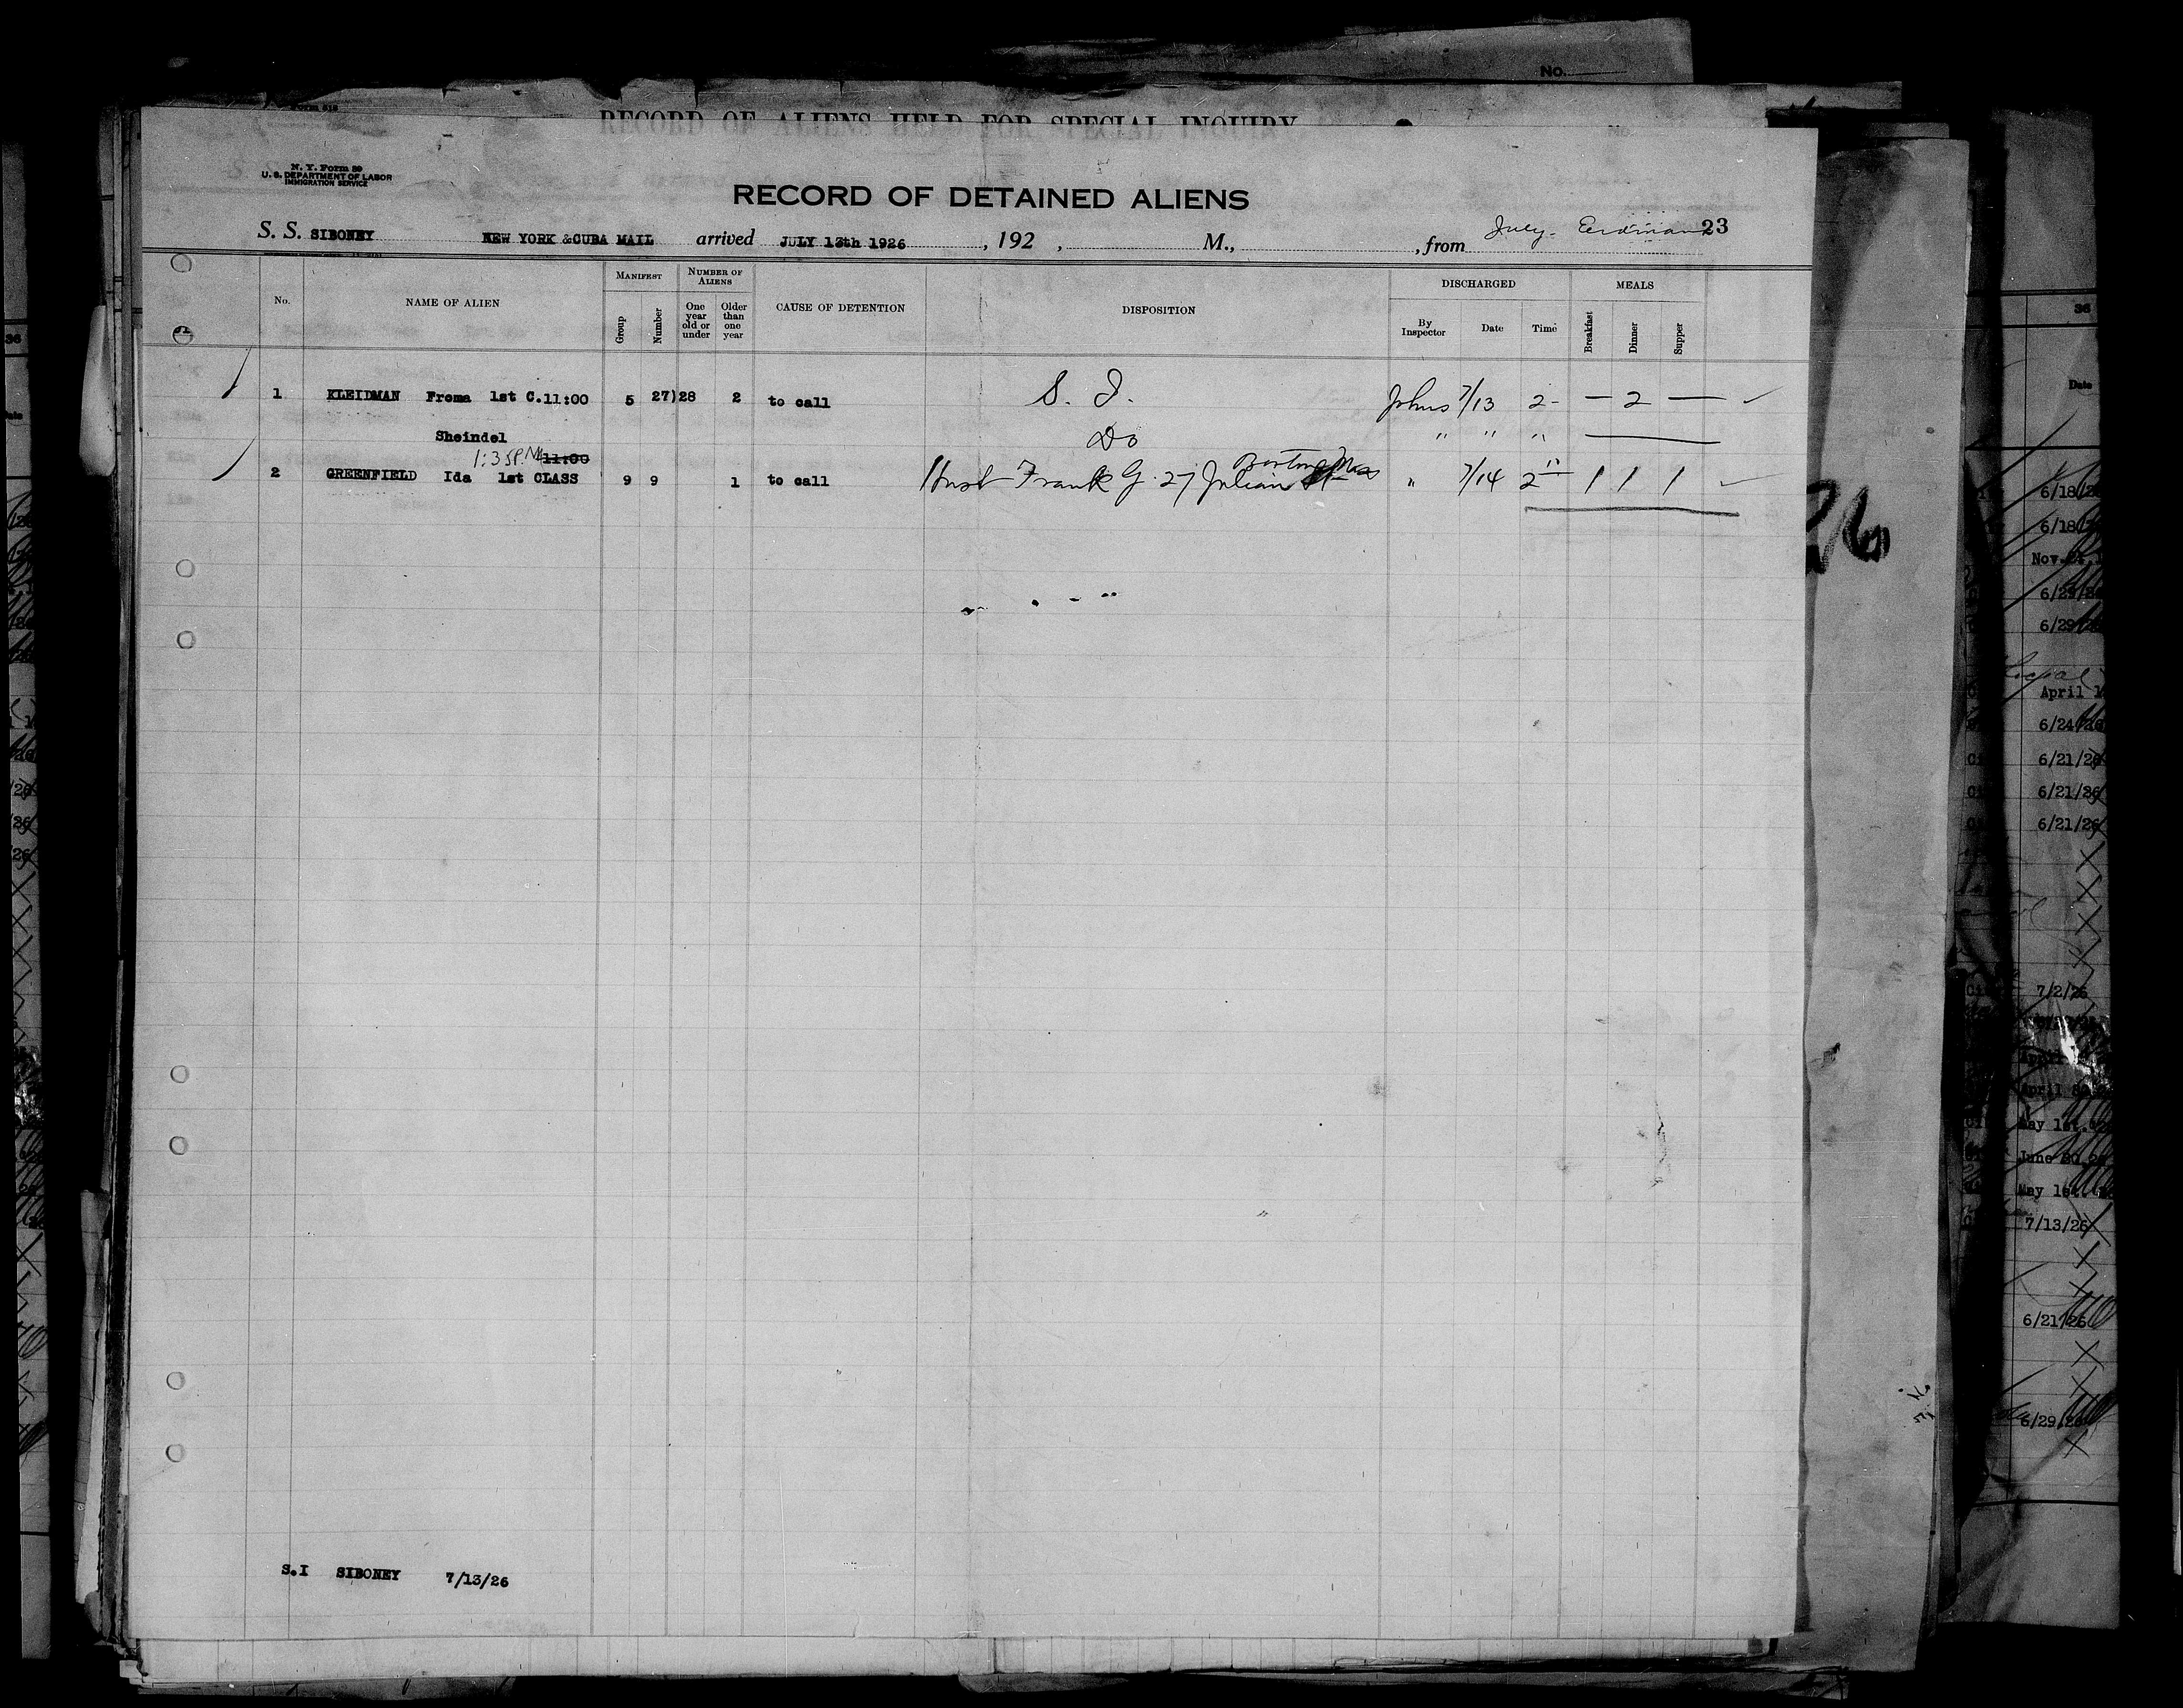 No.
Form 618
RECORD OF ALIENS HELD FOR SPECIAL INQUIRY
N. Y. Form 59
U. S. DEPARTMENT OF LABOR
IMMIGRATION SERVICE
RECORD OF DETAINED ALIENS
S. S. SIBONEY NEW YORK &CUBA MAIL arrived JULY 13th 1926 , 192 , M., , from July- 23
No. NAME OF ALIEN MANIFEST Group Number NUMBER OF ALIENS One year old or under Older than one year CAUSE OF DETENTION DISPOSITION DISCHARGED By Inspector Date Time MEALS Breakfast Dinner Supper
1 KLEIDMAN Froma 1st C.11:00 5 27)28 2 to call S. I. Johns 7/13 2- — 2 —
Sheindel Do " " "
1:35P.M. 11:00
2 GREENFIELD Ida 1st CLASS 9 9 1 to call Husb Frank G. 27 Julian St Boston Mass " 7/14 2 1 1 1
S.I SIBONEY 7/13/26
26
36
36
Date
6/18/26
6/18/26
Nov.
6/29/26
6/29/26
April 1
6/24/26
6/21/26
6/21/26
6/21/26
7/2/26
April
May 1st.
June 20
May 1st.
7/13/26
6/21/26
6/29.26